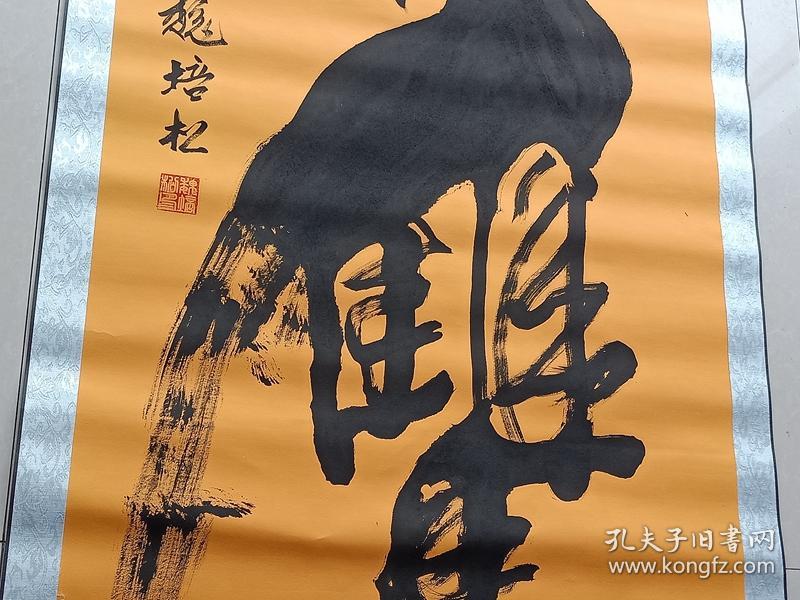 魏培松
鷹
孔夫子旧書网
www.kongfz.com